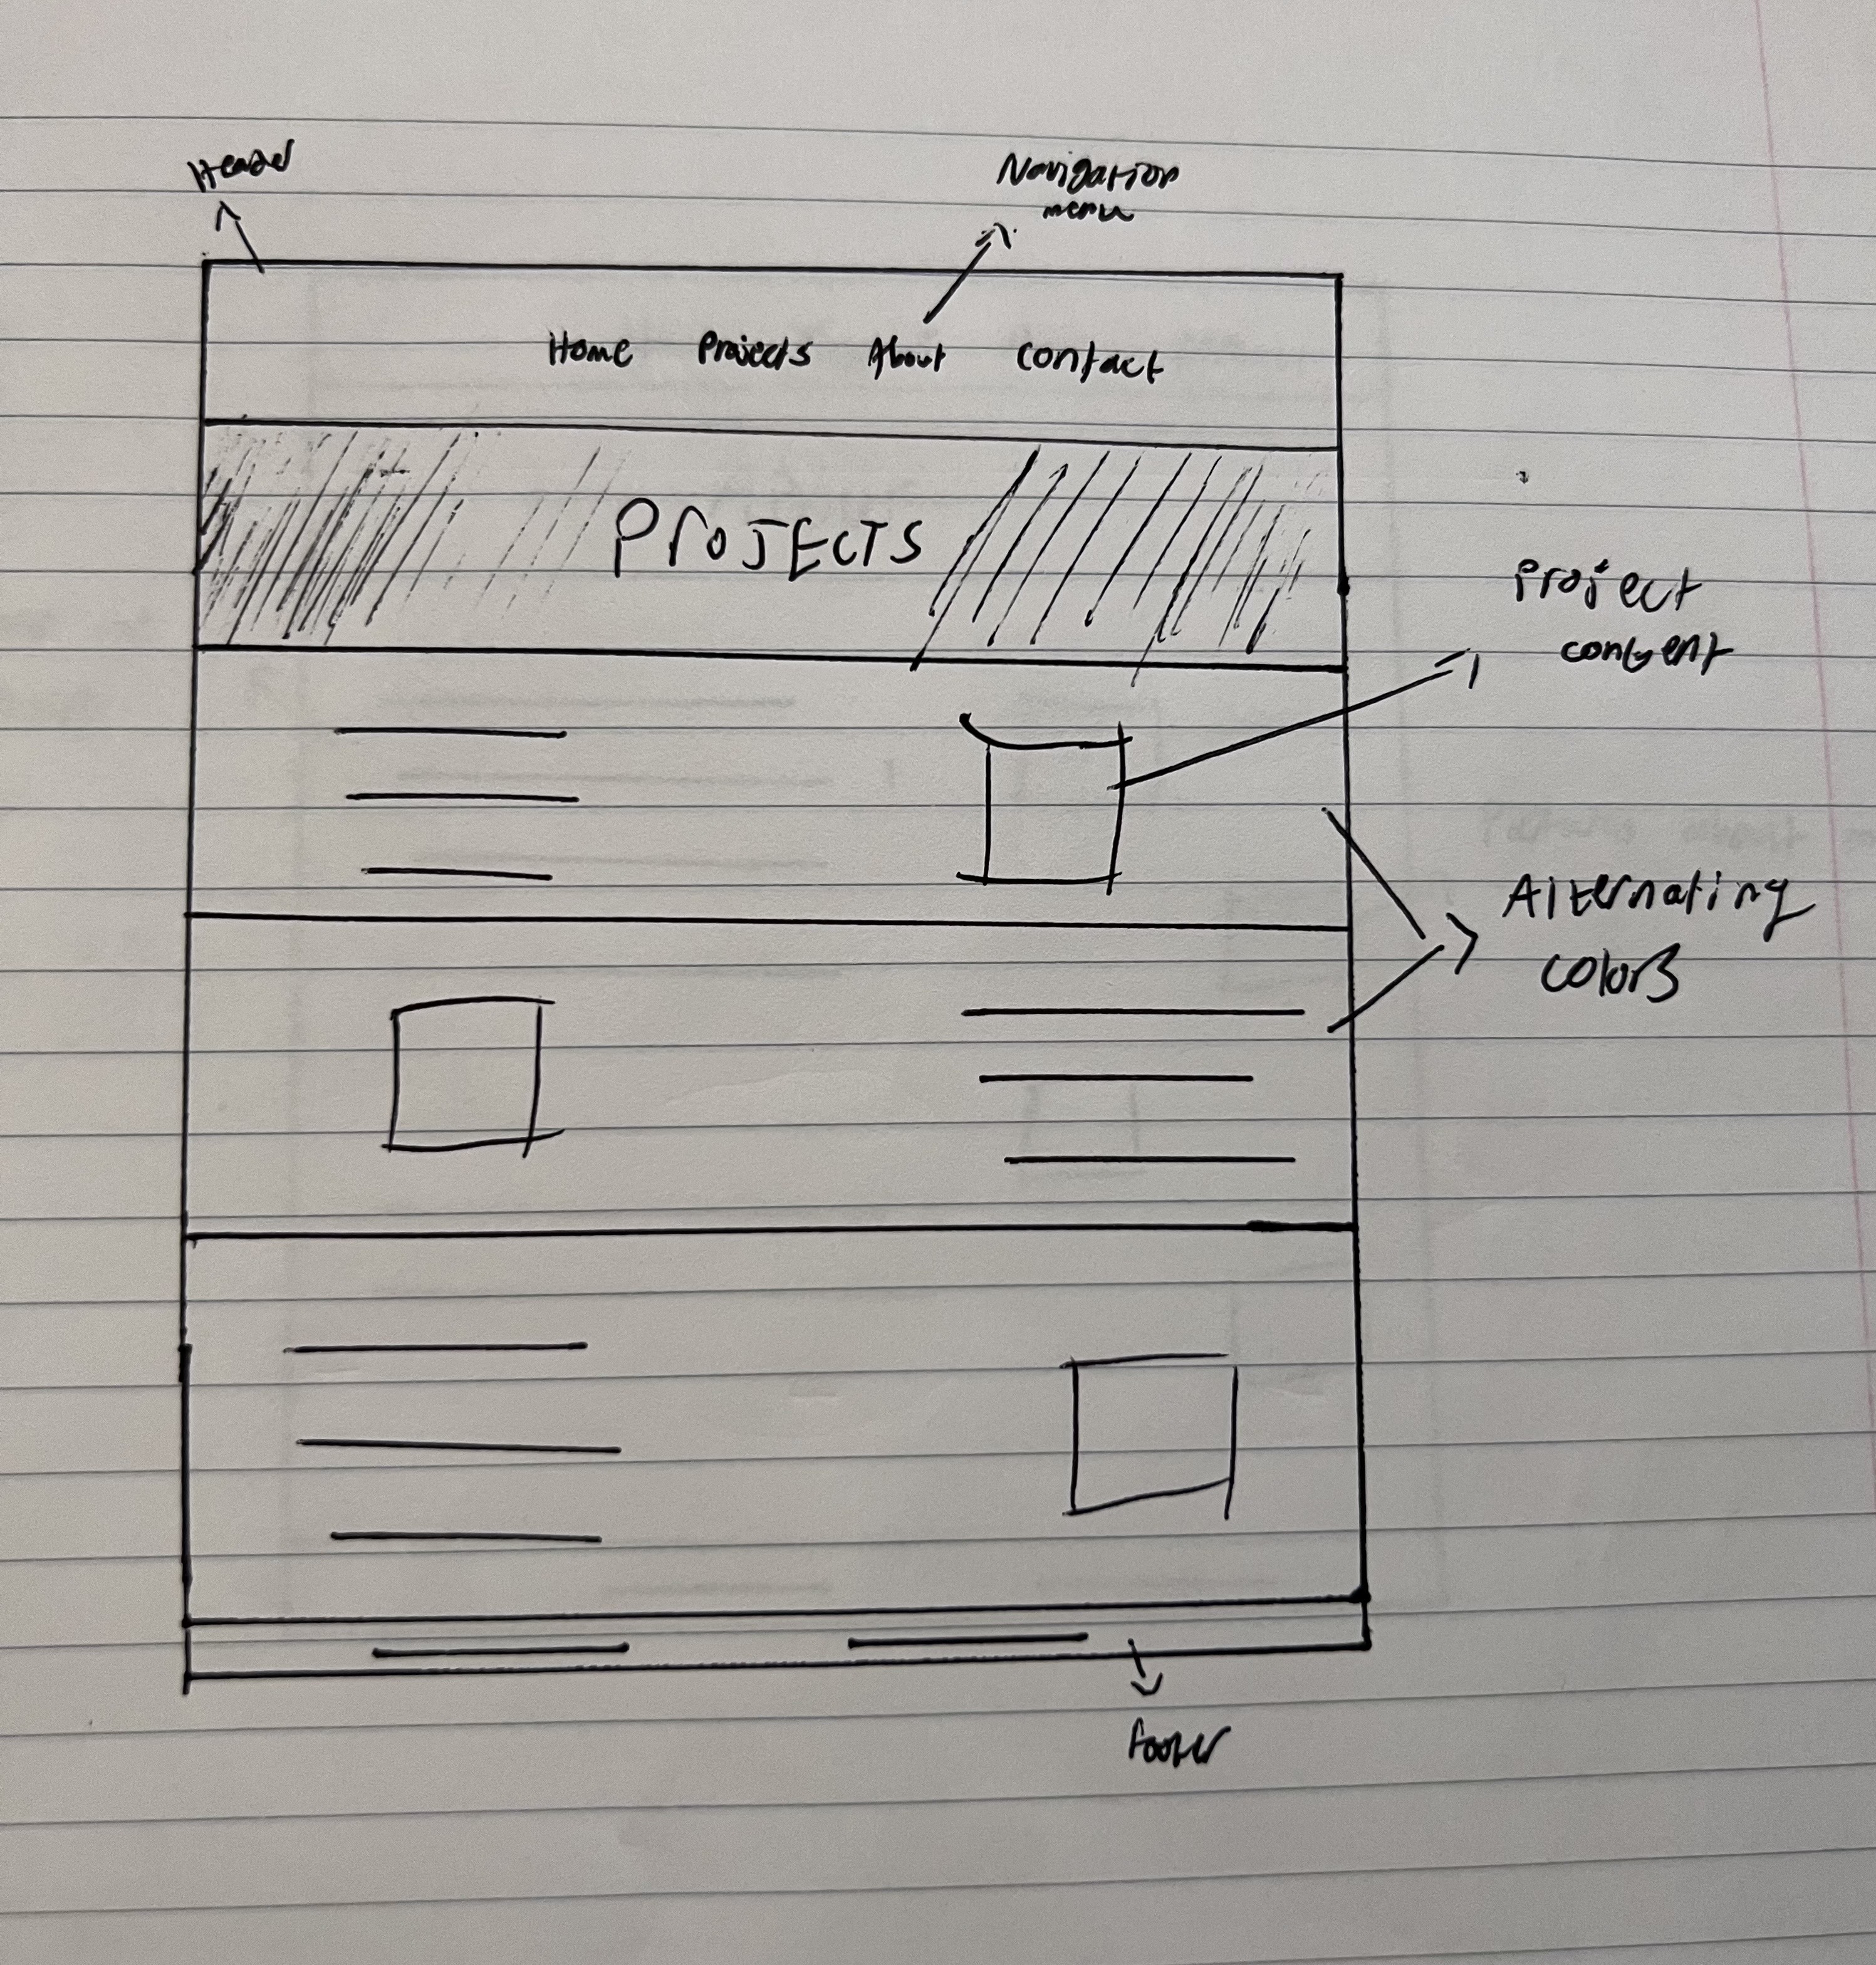 Header
Navigation
menu
Home Projects About Contact
PROJECTS
Project
content
Alternating
colors
footer